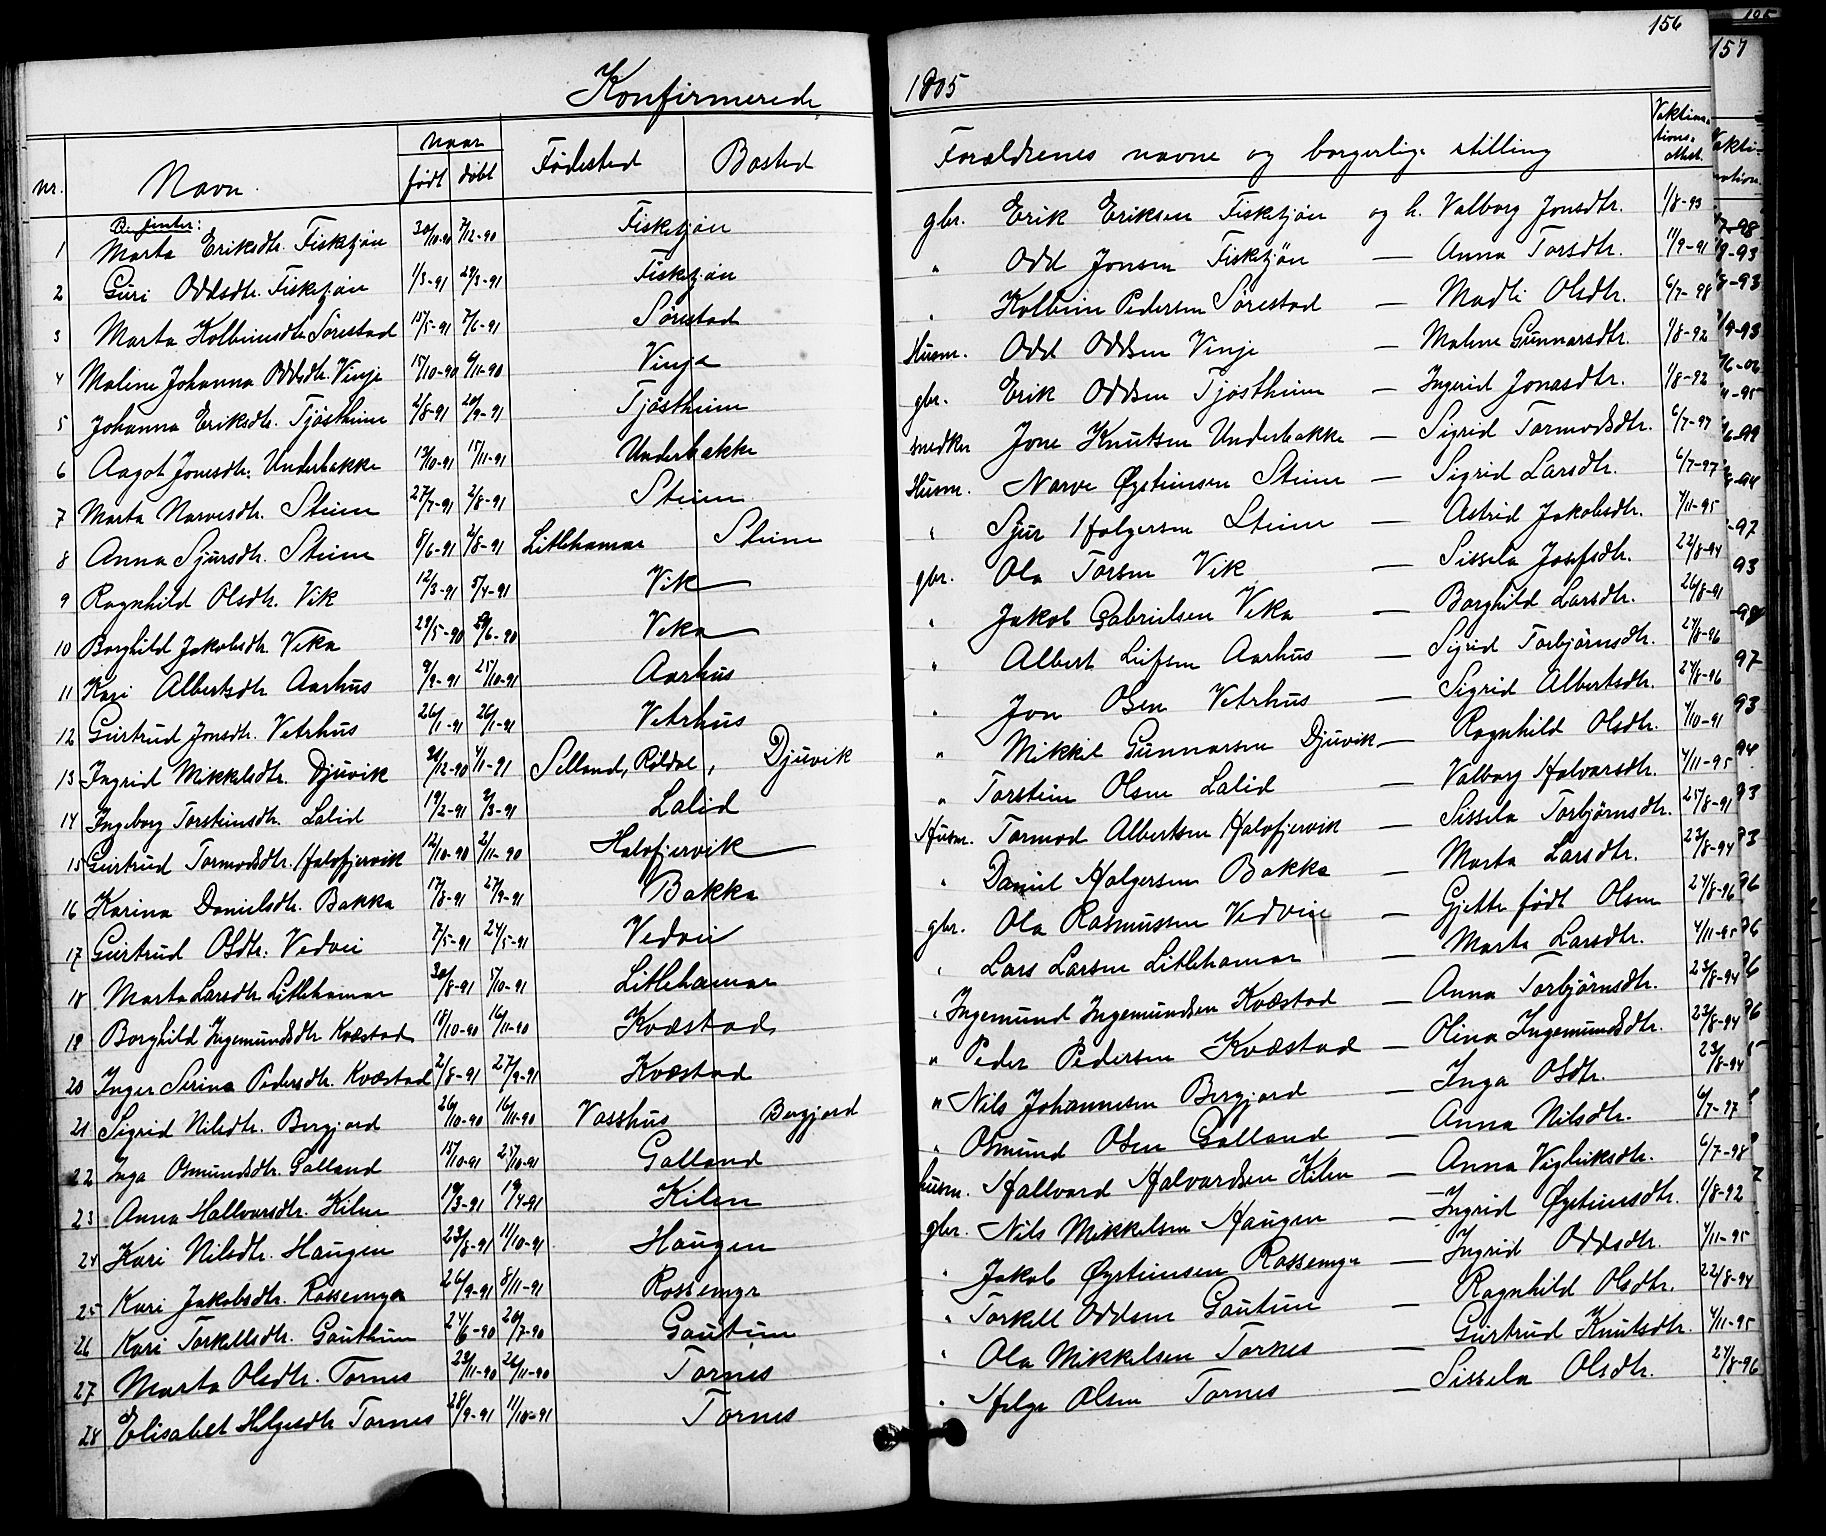 156
157
Konfirmerede 1905
nr. Navn. Naar født døbt Fødested Bosted Forældrenes navne og borgerlige stilling Vaktina-tions-attest.
Bi jenter:
1 Marta Eriksdtr. Fisketjøn 30/10-90 7/12-90 Fisketjøn gbr. Erik Eriksen Fisketjøn og h. Valborg Jonsdtr. 1/8-93
2 Guri Oddsdtr. Fisketjøn 1/3-91 29/3-91 Fisketjøn " Odd Jonsen Fisketjøn — Anna Torsdtr. 11/9-91
3 Marta Kolbeinsdtr. Sørestad 15/5-91 7/6-91 Sørestad " Kolbein Pedersen Sørestad — Madli Olsdtr. 6/7-98
4 Maline Johanna Oddsdtr. Vinje 15/10-90 9/11-90 Vinje Husm. Odd Oddsen Vinje — Malene Gunnarsdtr. 1/8-92
5 Johanna Eriksdtr. Tjøstheim 2/8-91 20/9-91 Tjøstheim gbr. Erik Oddsen Tjøstheim — Ingerid Jonasdtr. 1/8-92
6 Aagot Jonesdtr. Underbakke 13/10-91 15/11-91 Underbakke snedker Jone Knutsen Underbakke — Sigrid Tormodsdtr. 6/7-97
7 Marta Narvesdtr. Steine 27/7-91 2/8-91 Steine Husm. Narve Øysteinsen Steine — Sigrid Larsdtr. 6/7-97
8 Anna Sjursdtr. Steine 8/6-91 2/8-91 Litlehamar Steine " Sjur Holgersen Steine — Astrid Jakobsdtr. 4/11-95
9 Ragnhild Olsdtr. Vik 12/3-91 5/4-91 Vik gbr. Ola Torsen Vik — Sissela Josefsdtr. 22/8-94
10 Borghild Jakobsdtr. Veka 29/5-90 29/6-90 Veka " Jakob Gabrielsen Veka — Borghild Larsdtr. 26/8-91
11 Kari Albertsdtr. Aarhus 9/9-91 25/10-91 Aarhus " Albert Leifsen Aarhus — Sigrid Torbjørnsdtr. 24/8-96
12 Gurtrud Jonsdtr. Vetrhus 26/1-91 26/1-91 Vetrhus " Jon Olsen Vetrhus — Sigrid Albertsdtr. 24/8-96
13 Ingrid Mikkelsdtr. Djuvik 30/12-90 4/1-91 Selland, Røldal, Djuvik " Mikkel Gunnarsen Djuvik — Ragnhild Olsdtr. 1/10-91
14 Ingeborg Torsteinsdtr. Lalid 19/2-91 2/3-91 Lalid " Torstein Olsen Lalid — Valborg Halvarsdtr. 4/11-95
15 Gurtrud Tormodsdtr. Halofjervik 12/10-90 2/11-90 Halofjervik Husm. Tormod Albertsen Halofjervik — Sissela Torbjørnsdtr. 25/8-91
16 Karina Danielsdtr. Bakka 17/8-91 27/9-91 Bakka " Daniel Holgersen Bakka — Marta Larsdtr. 23/8-94
17 Gurtrud Olsdtr. Vedvei 7/5-91 24/5-91 Vedvei gbr. Ola Rasmussen Vedvei — Gjette født Olsen 24/8-96
18 Marta Larsdtr. Litlehamar 30/8-91 5/10-91 Litlehamar " Lars Larsen Litlehamar — Marta Larsdtr. 4/11-95
19 Borghild Ingemundsdtr. Kvæstad 18/10-90 16/11-90 Kvæstad " Ingemund Ingemundsen Kvæstad — Anna Torbjørnsdtr. 23/8-94
20 Inger Serina Pedersdtr. Kvæstad 2/8-91 27/9-91 Kvæstad " Peder Pedersen Kvæstad — Olina Ingemundsdtr. 23/8-94
21 Sigrid Nilsdtr. Bergjord 26/10-90 16/11-90 Vasshus Bergjord " Nils Johannesen Bergjord — Inga Olsdtr. 23/8-94
22 Inga Osmundsdtr. Galland 15/10-91 25/10-91 Galland " Osmund Olsen Galland — Anna Nilsdtr. 6/7-97
23 Anna Hallvarsdtr. Kilen 19/3-91 19/4-91 Kilen husm. Hallvard Halvardsen Kilen — Anna Vigleiksdtr. 6/7-98
24 Kari Nilsdtr. Haugen 23/8-91 11/10-91 Haugen gbr. Nils Mikkelsen Haugen — Ingrid Øysteinsdtr. 1/8-92
25 Kari Jakobsdtr. Rossemyr 26/9-91 8/11-91 Rossemyr " Jakob Øysteinsen Rossemyr — Ingrid Oddsdtr. 4/11-95
26 Kari Torkellsdtr. Gautheim 24/6-90 20/7-90 Gauteim " Torkell Oddsen Gauteim — Ragnhild Olsdtr. 22/8-94
27 Marta Olsdtr. Tornes 23/11-90 26/11-90 Tornes " Ola Mikkelsen Tornes — Gurtrud Knutsdtr. 4/11-95
28 Elisabet Helgesdtr. Tornes 28/9-91 11/10-91 Tornes " Helge Olsen Tornes — Sissela Olsdtr. 24/8-96